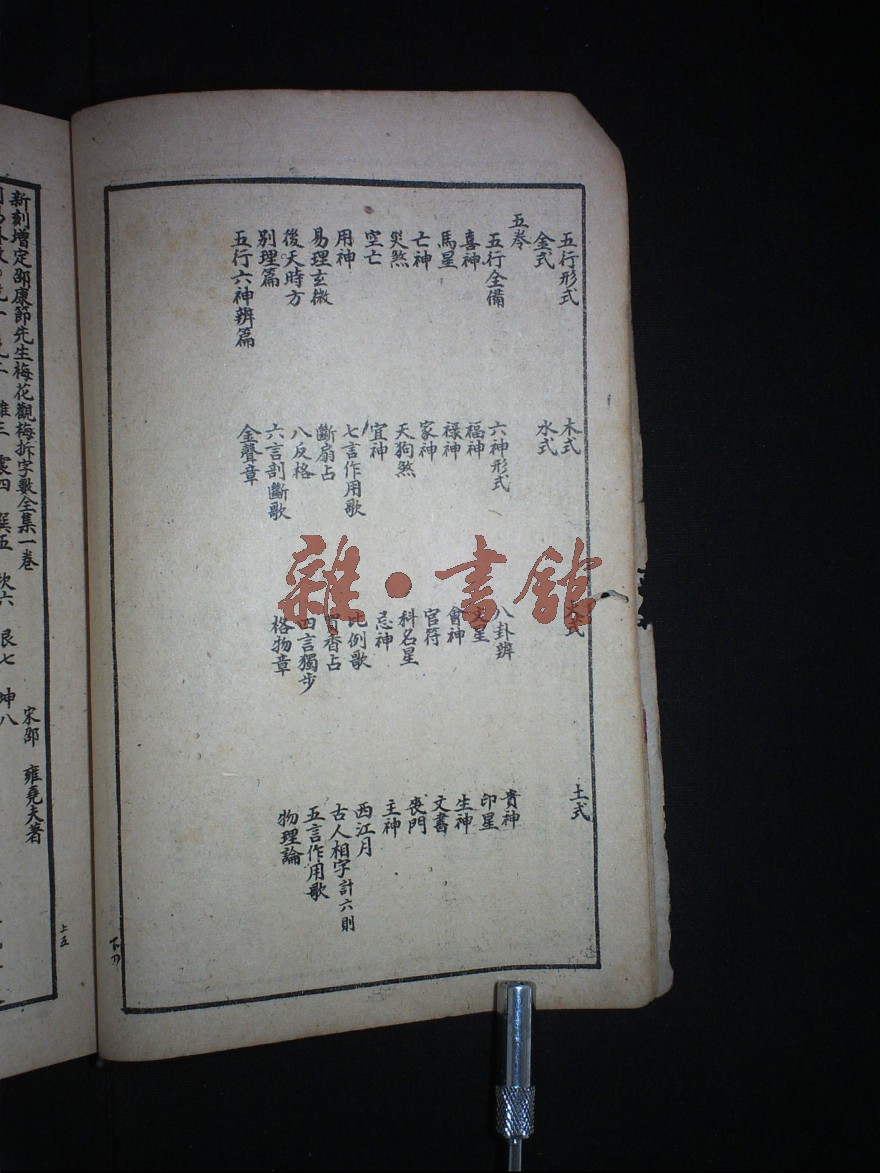 五行形式 木式 火式 土式
金式 水式
五岺
五行全備 六神形式 八卦辨 貴神
喜神 福神 文星 印星
馬星 祿神 會神 生神
亡神 家神 官符 文書
災煞 天狗煞 科名星 喪門
空亡 宜神 忌神 主神
用神 七言作用歌 比例歌 西江月
易理玄微 斷扇占 買香占 古人相字計六則
後天時方 八反格 四言獨步 五言作用歌
別理篇 六言剖斷歌 格物章 物理論
五行六神辨篇 金聲章
雜·書館
宋邵 雍堯夫著
新刻增定邵康節先生梅花觀梅拆字數全集一卷
離三 震四 巽五 坎六 艮七 坤八
上五